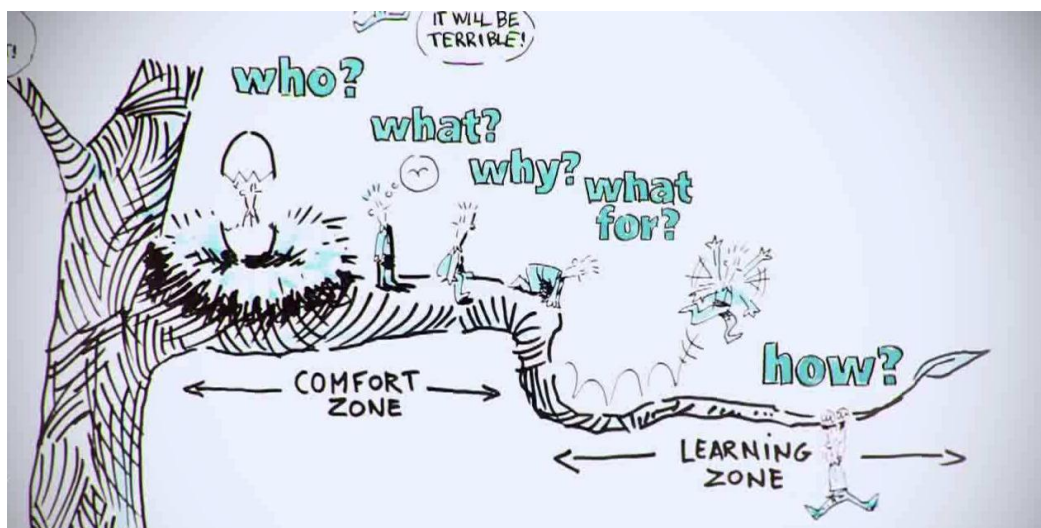 IT WILL BE
TERRIBLE!
who?
what?
why?
what
for?
how?
COMFORT
ZONE
LEARNING
ZONE